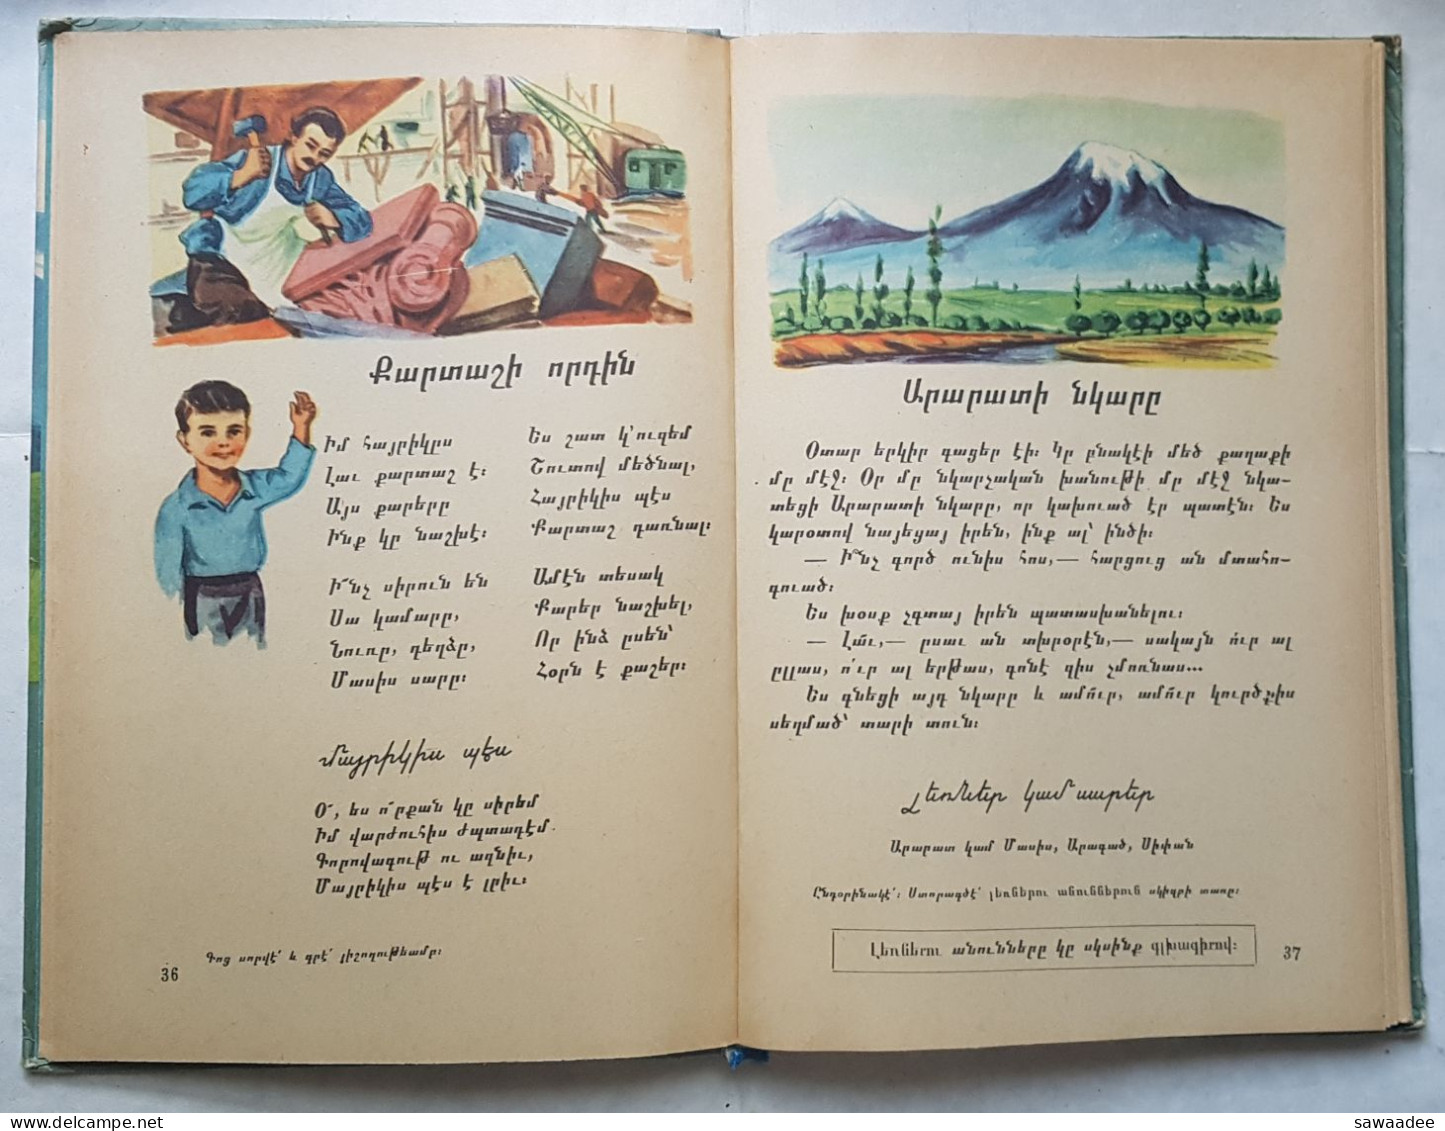 Քարտաշի որդին
Իմ հայրիկըս
Լաւ քարտաշ է։
Այս քարերը
Ինքը կը նաշխէ։
Ի՜նչ սիրուն են
Սա կամարը,
Նուռը, դեղձը,
Մասիս սարը։
Ես շատ կ՚ուզեմ
Շուտով մեծնալ,
Հայրիկիս պէս
Քարտաշ դառնալ։
Ամէն տեսակ
Քարեր նաշխել,
Որ ինձ ըսեն՝
Հօրն է քաշեր։
Մայրիկիս պէս
Օ՜, ես ո՜րքան կը սիրեմ
Իմ վարժուհիս ժպտադէմ.
Գորովագութ ու ազնիւ,
Մայրիկիս պէս է լրիւ։
Գոց սորվէ՛ և գրէ՛ յիշողութեամբ։
36
Արարատի նկարը
Օտար երկիր գացեր էի։ Կը բնակէի մեծ քաղաքի
մը մէջ։ Օր մը նկարչական խանութի մը մէջ նկա-
տեցի Արարատի նկարը, որ կախուած էր պատէն։ Ես
կարօտով նայեցայ իրեն, ինք ալ՝ ինծի։
— Ի՞նչ գործ ունիս հոս,— հարցուց ան մտահո-
գուած։
Ես խօսք չգտայ իրեն պատասխանելու։
— Լա՜ւ,— ըսաւ ան տխրօրէն,— սակայն ո՛ւր ալ
ըլլաս, ո՛ւր ալ երթաս, գոնէ զիս չմոռնաս...
Ես գնեցի այդ նկարը և ամո՜ւր, ամո՜ւր կուրծքիս
սեղմած՝ տարի տուն։
Լեռներ կամ սարեր
Արարատ կամ Մասիս, Արագած, Սիփան
Ընդօրինակէ՛։ Ստորագծէ՛ լեռներու անուններուն սկիզբի տառը։
Լեռներու անունները կը սկսինք գլխագիրով։
37
sawaadee